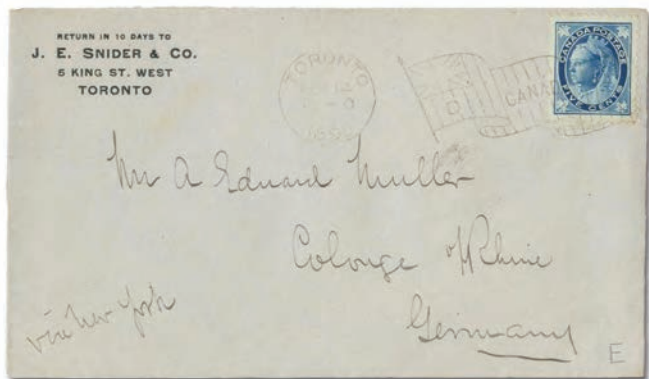 RETURN IN 10 DAYS TO
J. E. SNIDER & CO.
5 KING ST. WEST
TORONTO
TORONTO
CANADA
CANADA POSTAGE
FIVE CENTS
Mr A Eduard Muller
Colonge Rhine
via New York
Germany
E